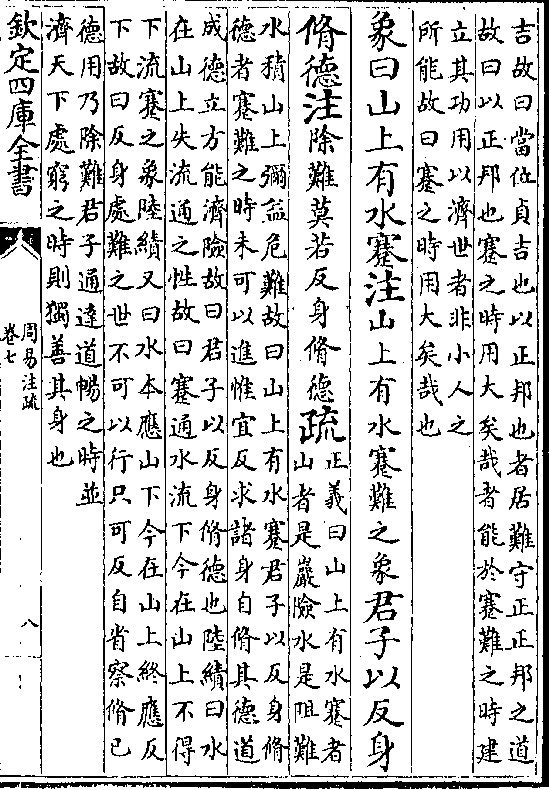 吉故曰當位貞吉也以正邦也者居難守正正邦之道
故曰以正邦也蹇之時用大矣哉者能於蹇難之時建
立其功用以濟世者非小人之
所能故曰蹇之時用大矣哉也
象曰山上有水蹇注山上有水蹇難之象君子以反身
脩德注除難莫若反身脩德疏正義曰山上有水蹇者
山者是巖險水是阻難
水積山上彌益危難故曰山上有水蹇君子以反身脩
德者蹇難之時未可以進惟宜反求諸身自脩其德道
成德立方能濟險故曰君子以反身脩德也陸績曰水
在山上失流通之性故曰蹇通水流下今在山上不得
下流蹇之象陸績又曰水本應山下今在山上終應反
下故曰反身處難之世不可以行只可反自省察脩已
德用乃除難君子通達道暢之時並
濟天下處窮之時則獨善其身也
欽定四庫全書
周易注疏
卷七
八